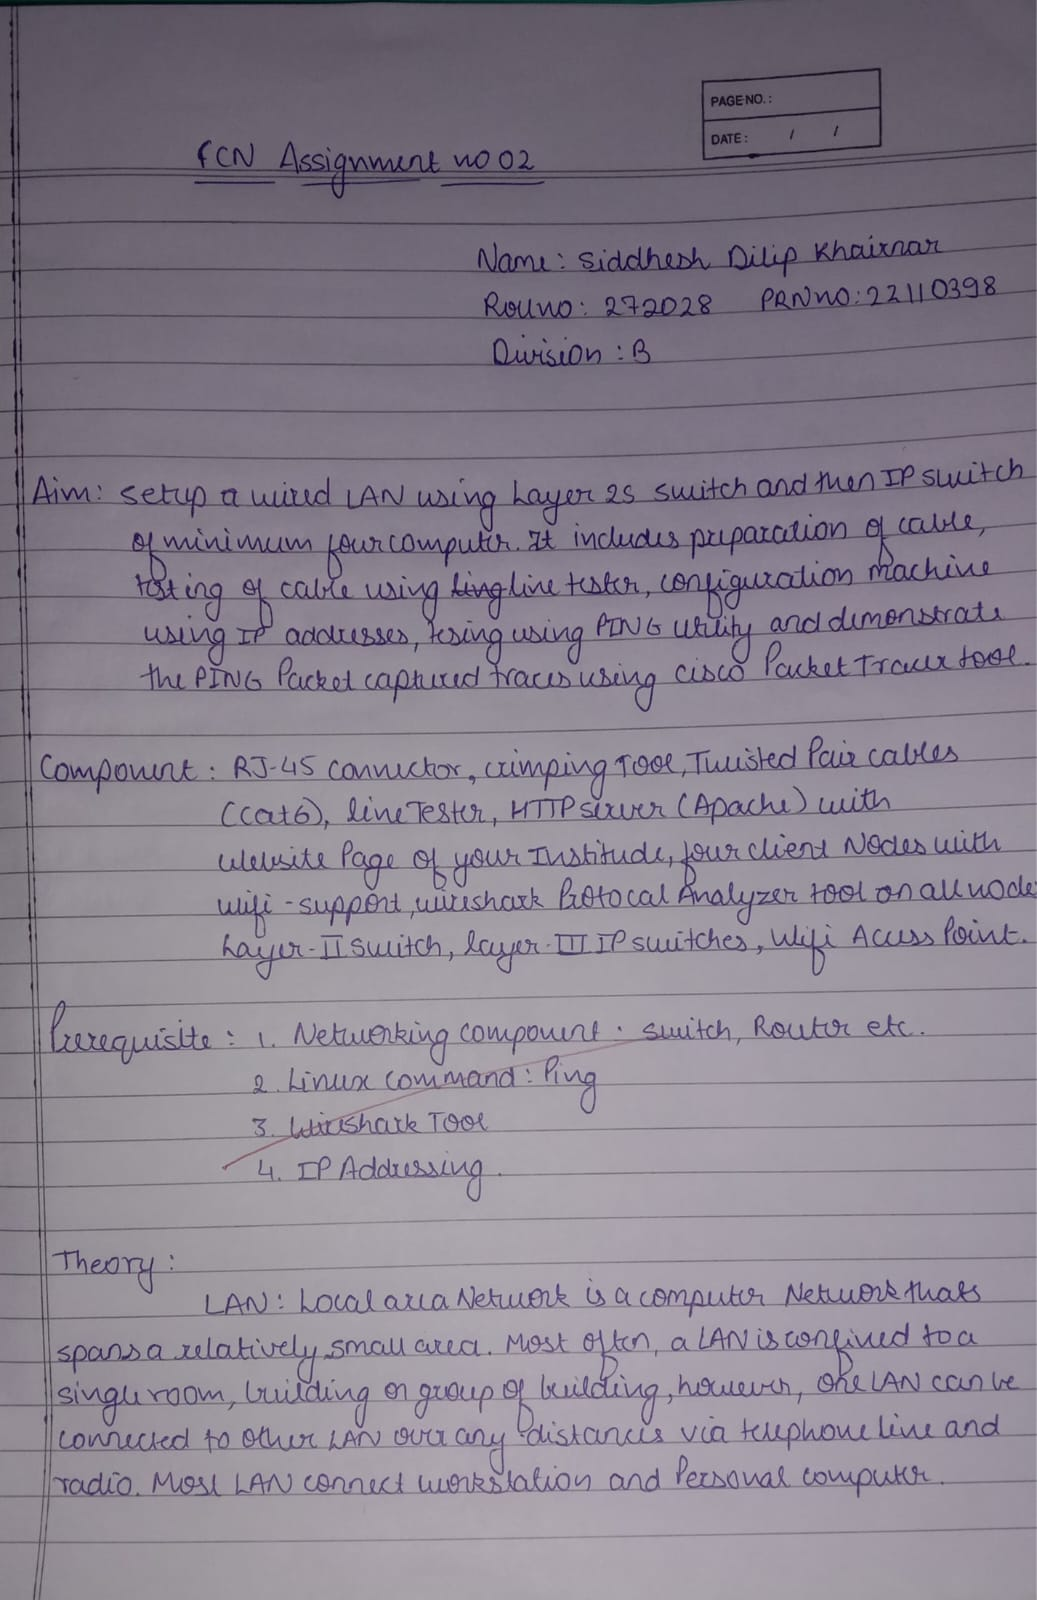 PAGE NO.:
DATE: / /
FCN Assignment no 02
Name: Siddhesh Dilip Khairnar
Roll no: 272028 PRN no: 22110398
Division : B
Aim: Setup a wired LAN using Layer 2S switch and then IP switch
of minimum four computer. It includes preparation of cable,
testing of cable using line tester, configuration machine
using IP addresses, tesing using PING utility and demonstrate
the PING Packet captured traces using cisco Packet Tracer tool.
Component : RJ-45 connector, crimping Tool, Twisted Pair cables
(cat6), line Tester, HTTP server (Apache) with
website Page of your Institude, four client Nodes with
wifi-support, wireshark Protocal Analyzer tool on all node
Layer-II switch, layer-III IP switches, Wifi Access Point.
Prerequisite : 1. Networking component : switch, Router etc.
2. Linux command : Ping
3. Wireshark Tool
4. IP Addressing.
Theory :
LAN : Local area Network is a computer Network thats
spans a relatively small area. Most often, a LAN is confined to a
single room, building or group of building, however, one LAN can be
connected to other LAN over any distances via telephone line and
radio. Most LAN connect workstation and Personal computer.